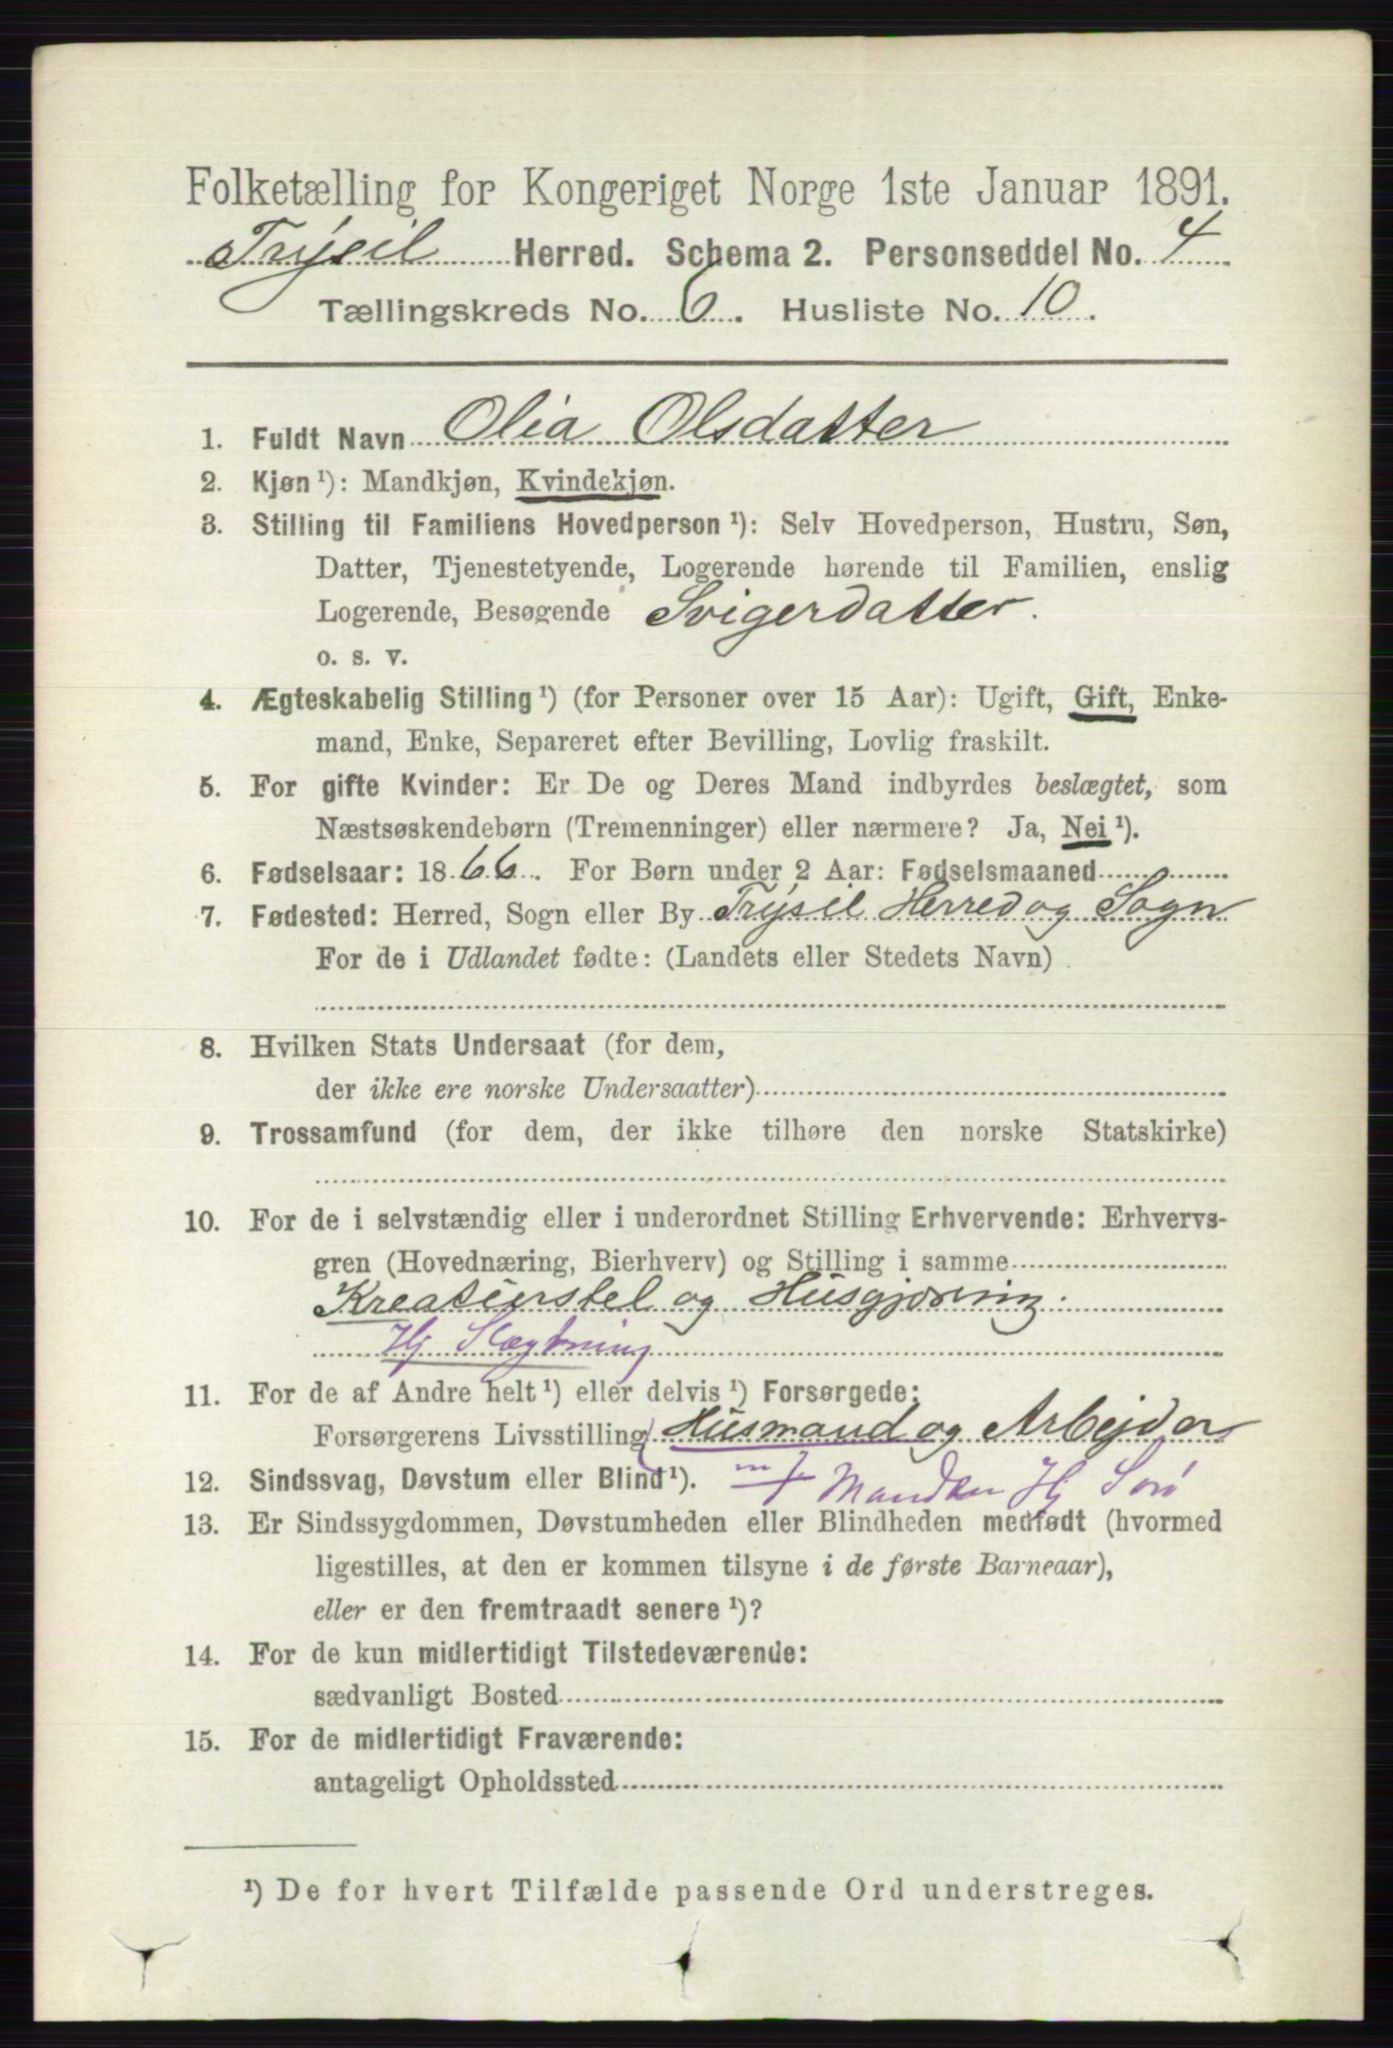 Folketælling for Kongeriget Norge 1ste Januar 1891.
Trysil Herred. Schema 2. Personseddel No. 4
Tællingskreds No. 6. Husliste No. 10.
1. Fuldt Navn Olia Olsdatter
2. Kjøn ¹): Mandkjøn, Kvindekjøn.
3. Stilling til Familiens Hovedperson ¹): Selv Hovedperson, Hustru, Søn,
Datter, Tjenestetyende, Logerende hørende til Familien, enslig
Logerende, Besøgende Svigerdatter.
o. s. v.
4. Ægteskabelig Stilling ¹) (for Personer over 15 Aar): Ugift, Gift, Enke-
mand, Enke, Separeret efter Bevilling, Lovlig fraskilt.
5. For gifte Kvinder: Er De og Deres Mand indbyrdes beslægtet, som
Næstsøskendebørn (Tremenninger) eller nærmere? Ja, Nei ¹).
6. Fødselsaar: 1866. For Børn under 2 Aar: Fødselsmaaned
7. Fødested: Herred, Sogn eller By Trysil Herred og Sogn
For de i Udlandet fødte: (Landets eller Stedets Navn)
8. Hvilken Stats Undersaat (for dem,
der ikke ere norske Undersaatter)
9. Trossamfund (for dem, der ikke tilhøre den norske Statskirke)
10. For de i selvstændig eller i underordnet Stilling Erhvervende: Erhvervs-
gren (Hovednæring, Bierhverv) og Stilling i samme
Kreaturstel og Husgjøring.
Hj Slægtning
11. For de af Andre helt ¹) eller delvis ¹) Forsørgede:
Forsørgerens Livsstilling Husmand og Arbejder
12. Sindssvag, Døvstum eller Blind ¹). Manden Hj
13. Er Sindssygdommen, Døvstumheden eller Blindheden medfødt (hvormed
ligestilles, at den er kommen tilsyne i de første Barneaar),
eller er den fremtraadt senere ¹)?
14. For de kun midlertidigt Tilstedeværende:
sædvanligt Bosted
15. For de midlertidigt Fraværende:
antageligt Opholdssted
¹) De for hvert Tilfælde passende Ord understreges.